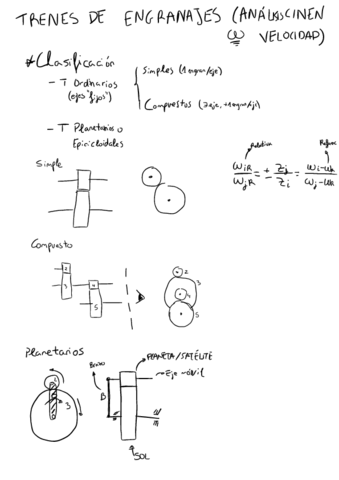 TRENES DE ENGRANAJES (ANÁLISIS CINEM
ω VELOCIDAD)
* Clasificación
- T Ordinarios
(ejes "fijos")
Simples (1 engran/eje)
Compuestos (2 eje, +1 engran/eje)
- T Planetarios o
Epicicloidales
Simple
Relativa
ωiR/ωjR = ± Zj/Zi = ωi-ωR/ωj-ωR
Compuesto
2
3
4
5
2
3
4
5
Planetarios
3
Brazo
B
PLANETA/SATÉLITE
Eje móvil
SOL